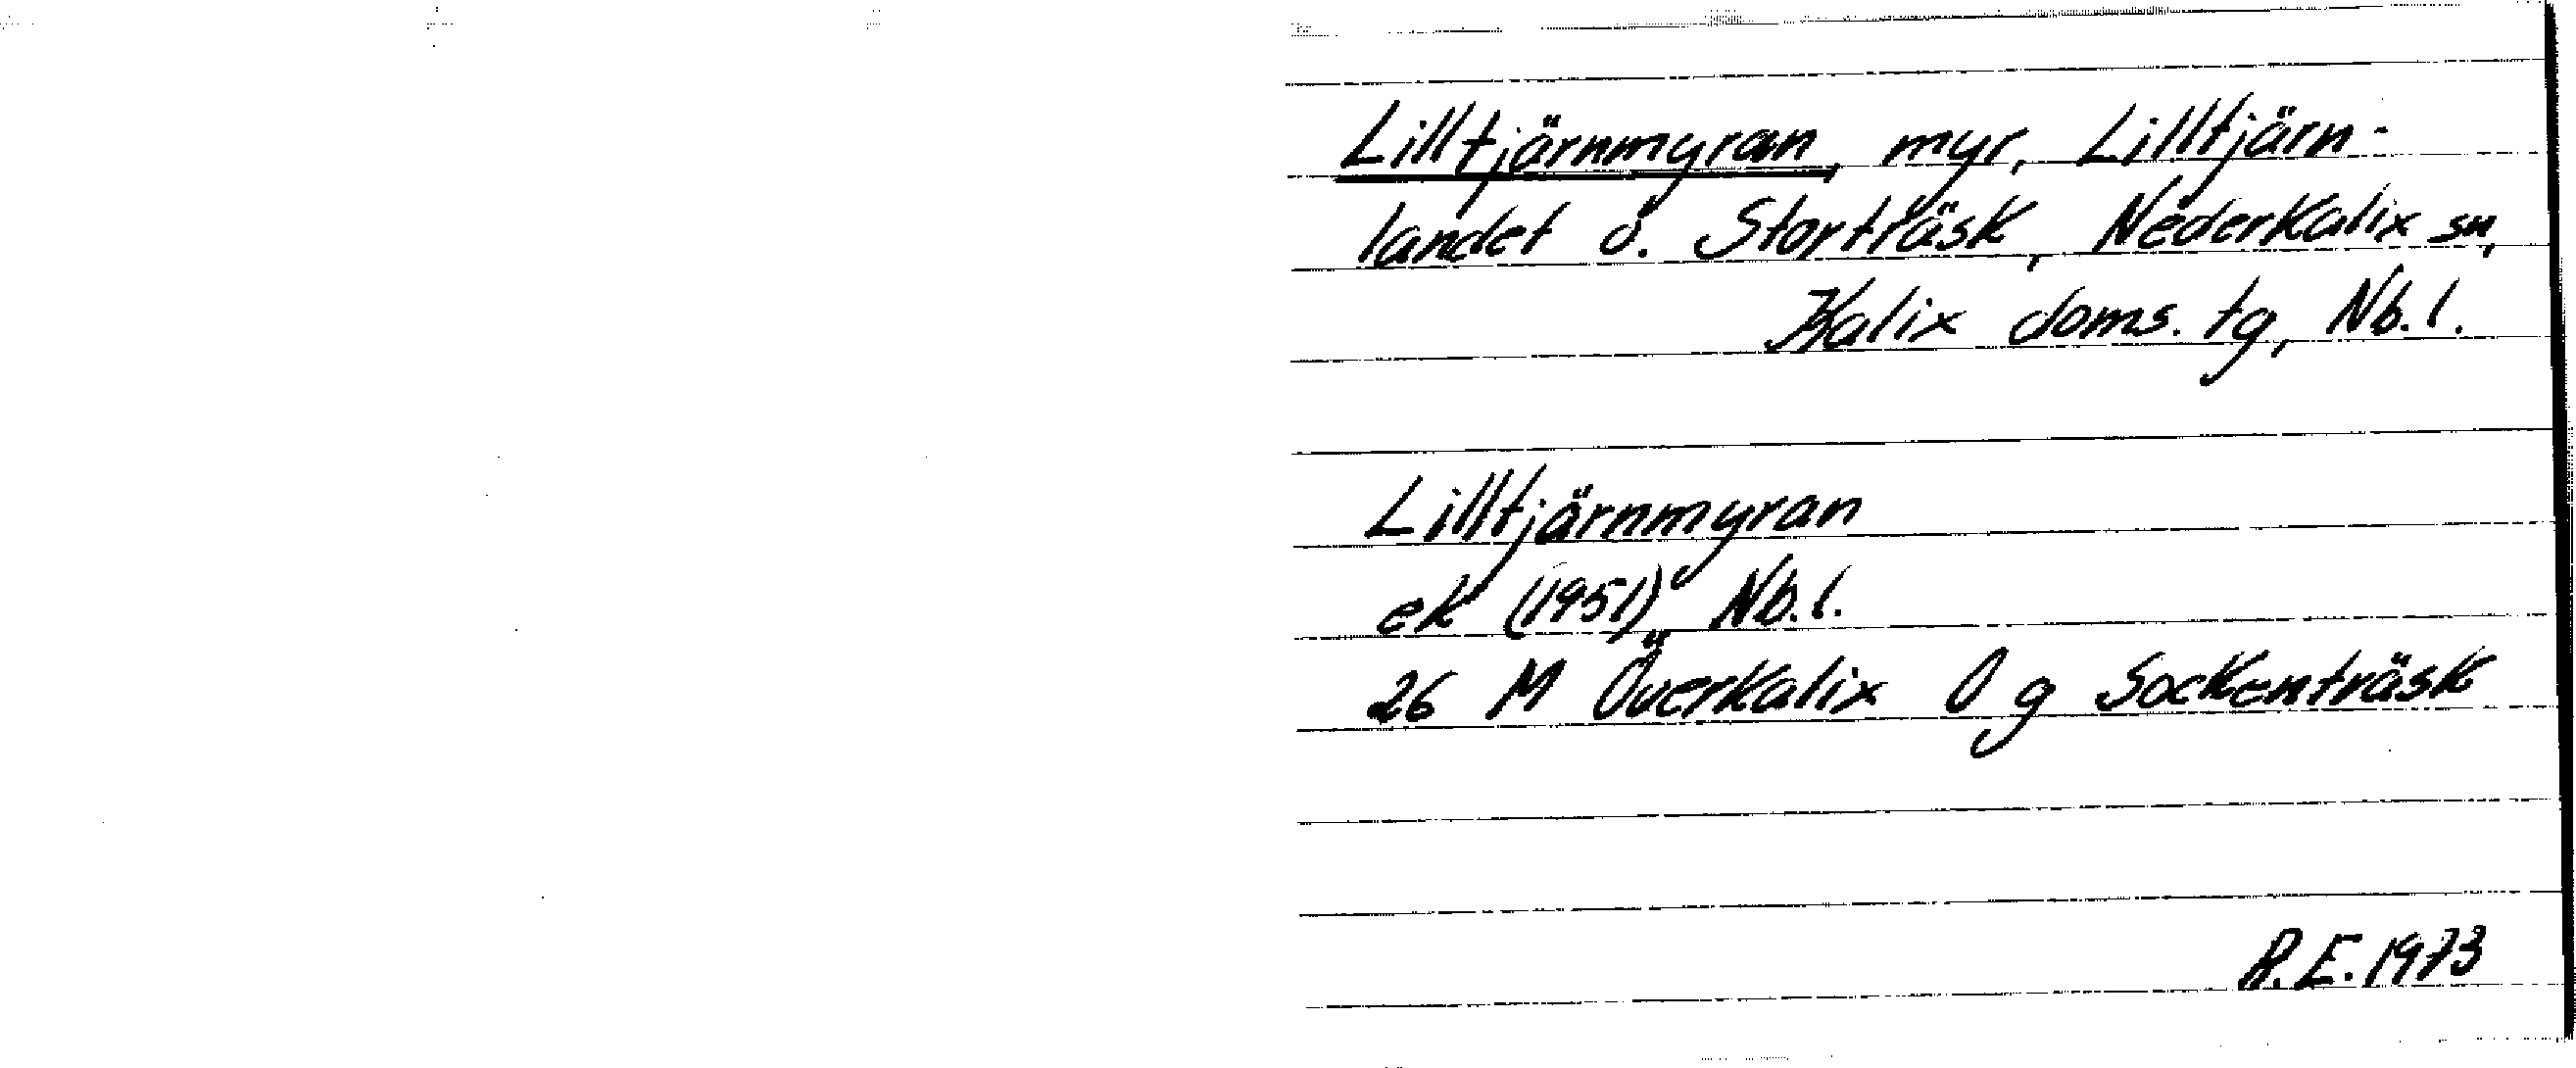 Lilltjärnmyran, myr, Lilltjärn-
landet ö. Storträsk, Nederkalix sn,
Kalix doms. tg, Nb. l.
Lilltjärnmyran
ek (1951) Nb. l.
26 M Överkalix O g Sockenträsk
R.E. 1973